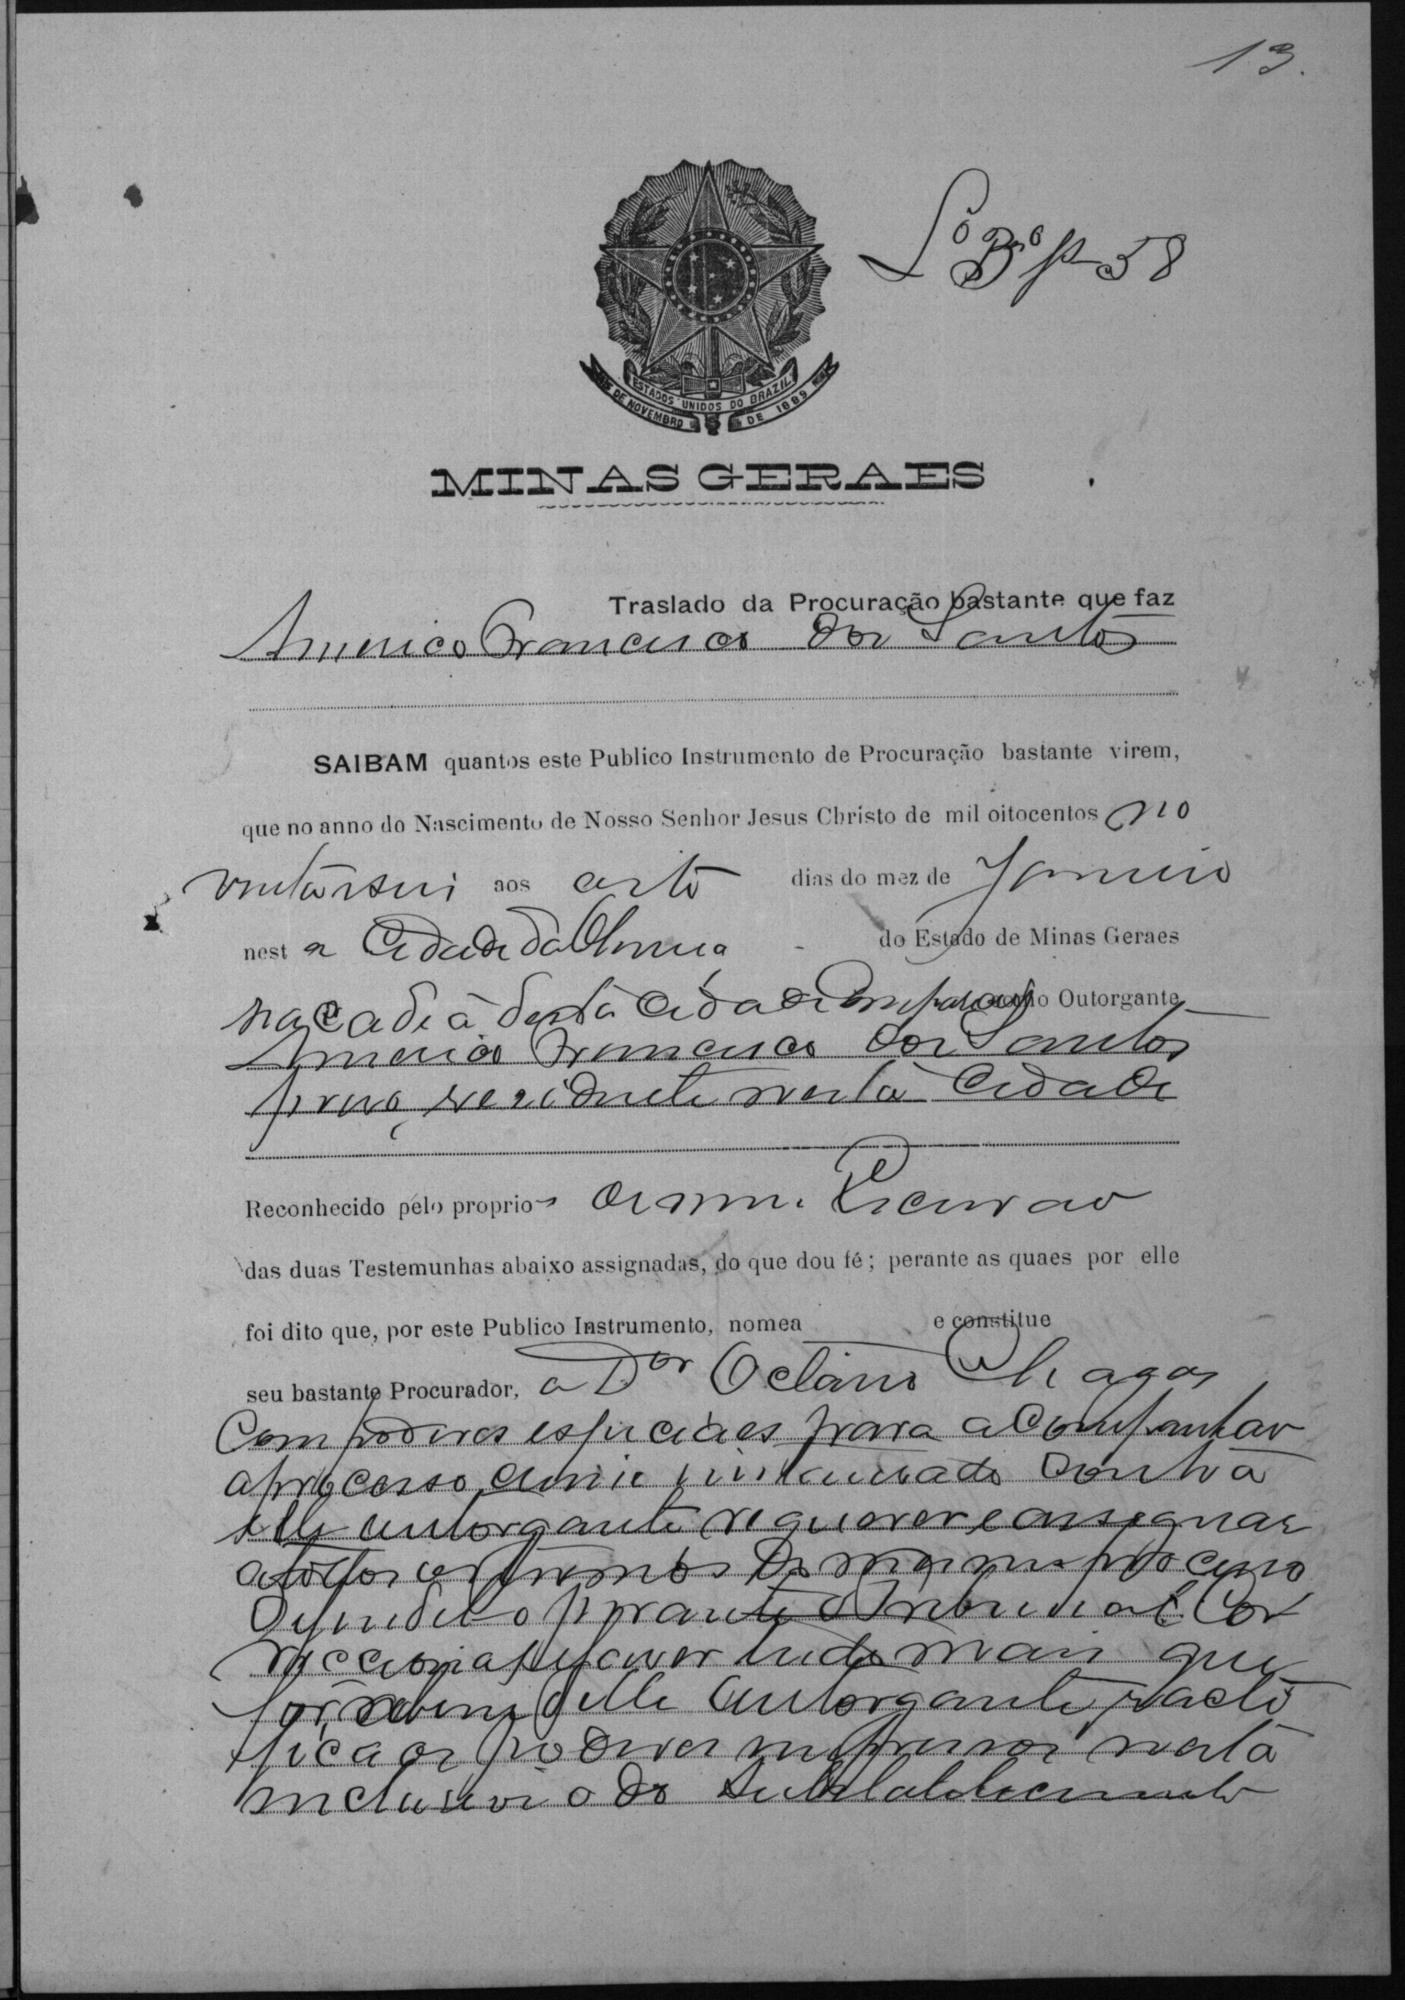 13.
Lº Bº p 58
ESTADOS UNIDOS DO BRAZIL
15 DE NOVEMBRO DE 1889
MINAS GERAES
Traslado da Procuração bastante que faz
Americo Francisco dos Santos
SAIBAM quantos este Publico Instrumento de Procuração bastante virem,
que no anno do Nascimento de Nosso Senhor Jesus Christo de mil oitocentos no
ventaseui aos oito dias do mez de Janeiro
nest a Cidade da do Estado de Minas Geraes
na Cadeia desta Cidade Compareceo como Outorgante
Americo Francisco dos Santos
preso, residente nesta Cidade
Reconhecido pelo proprio de mim Escrivao
das duas Testemunhas abaixo assignadas, do que dou fé; perante as quaes por elle
foi dito que, por este Publico Instrumento, nomea e constitue
seu bastante Procurador, a Dor Octavio Chagas
Com poderes especiaes para acompanhar
o processo crime instaurado contra
elle outorgante requerer e assignar
todos os termos do mesmo processo
defendel-o perante o Tribunal Cor
reccional, e fazer tudo mais que
for a bem delle Outorgante, racti
fica os poderes impressos nesta
inclusive o do Substabelecimento